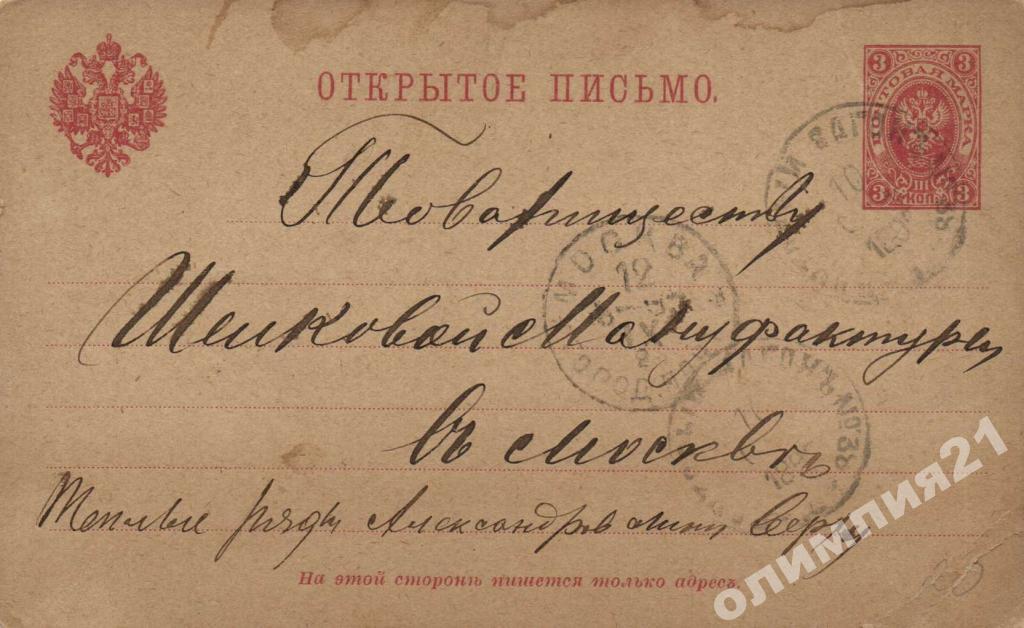 ОТКРЫТОЕ ПИСЬМО.
3 3
ПОЧТОВАЯ МАРКА
3 III КОП 3
Товариществу
МОСКВА
12
Шелковой Мануфактуры
ВАГОНЪ № 35
въ Москвѣ
Теплые ряды Александров линия
На этой сторонѣ пишется только адресъ.
олимпия21